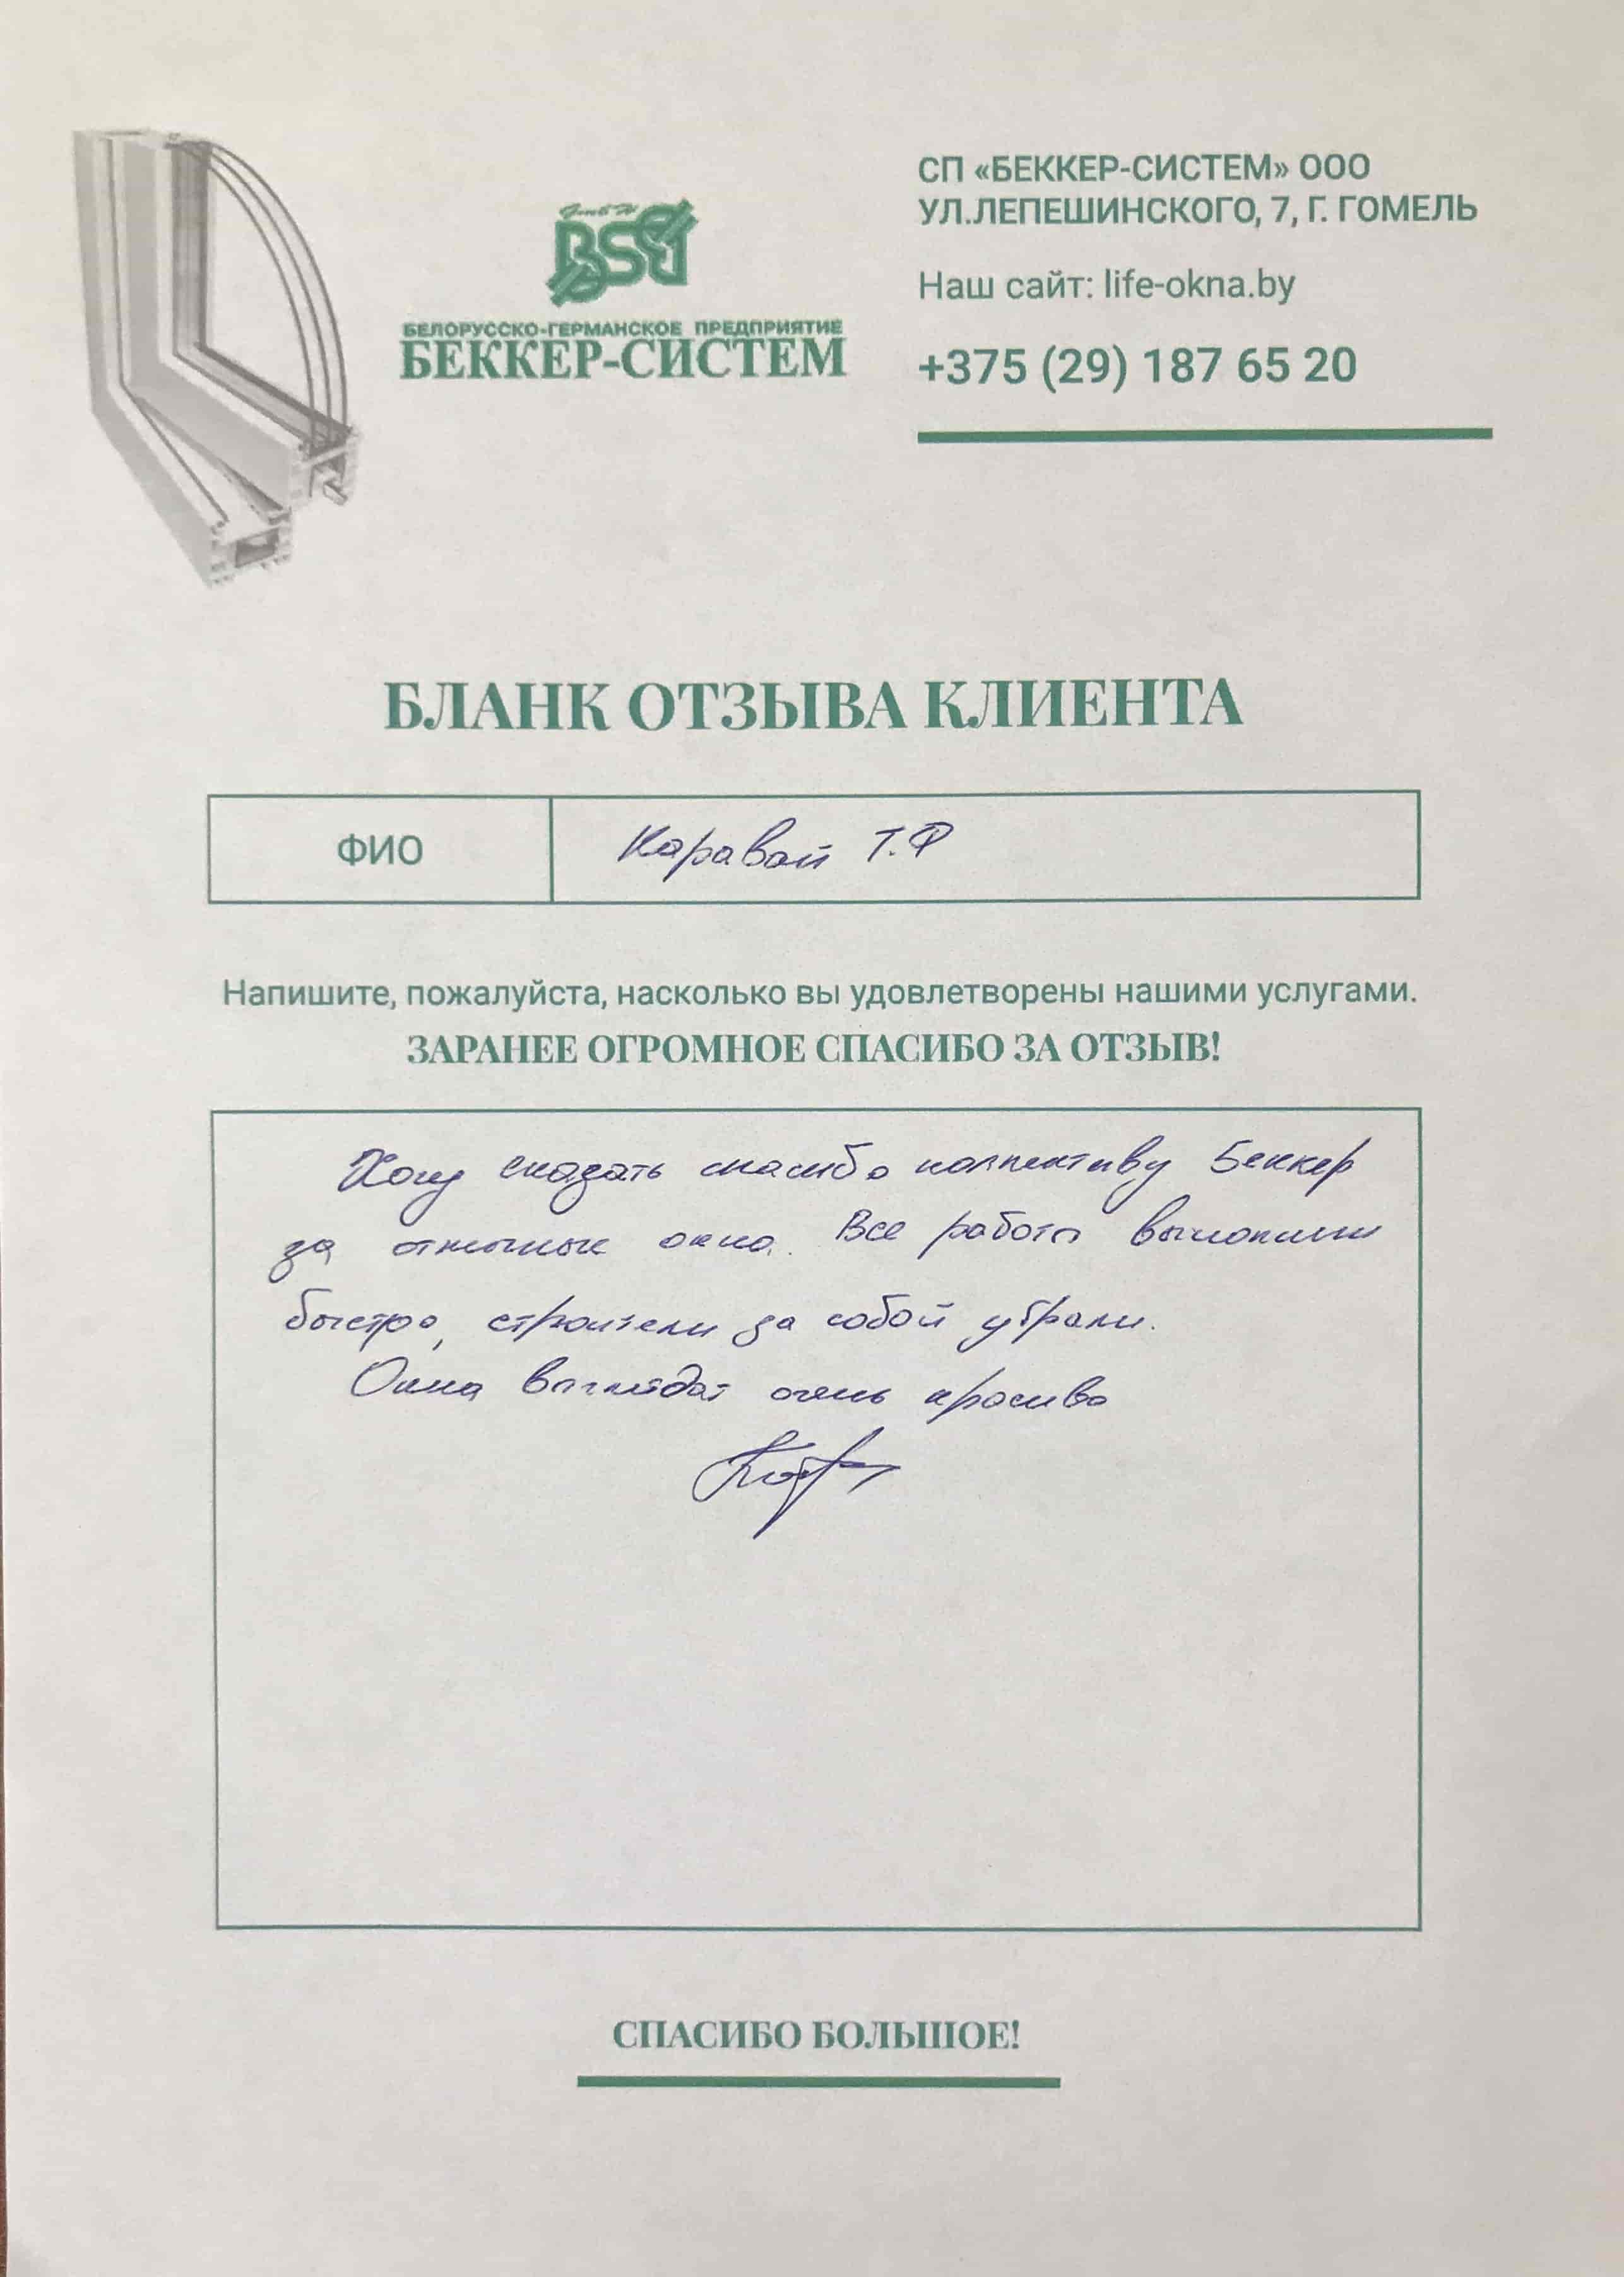 СП «БЕККЕР-СИСТЕМ» ООО
УЛ.ЛЕПЕШИНСКОГО, 7, Г. ГОМЕЛЬ
Наш сайт: life-okna.by
+375 (29) 187 65 20
BSG
БЕЛОРУССКО-ГЕРМАНСКОЕ ПРЕДПРИЯТИЕ
БЕККЕР-СИСТЕМ
БЛАНК ОТЗЫВА КЛИЕНТА
ФИО
Каравай Т.Ф
Напишите, пожалуйста, насколько вы удовлетворены нашими услугами.
ЗАРАНЕЕ ОГРОМНОЕ СПАСИБО ЗА ОТЗЫВ!
Хочу сказать спасибо коллективу Беккер
за отличные окна. Все работы выполнили
быстро, строители за собой убрали.
Окна выглядят очень красиво
СПАСИБО БОЛЬШОЕ!